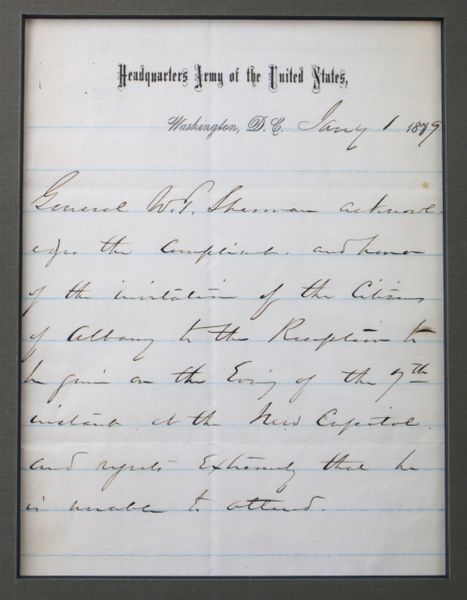 Headquarters Army of the United States,
Washington, D.C. Jany 1 1879
General W.T. Sherman acknowl
edges the compliment, and honor
of the invitation of the Citizens
of Albany to the Reception to
be given on the Eving of the 7th
instant at the New Capitol,
and regrets Extremely that he
is unable to attend.